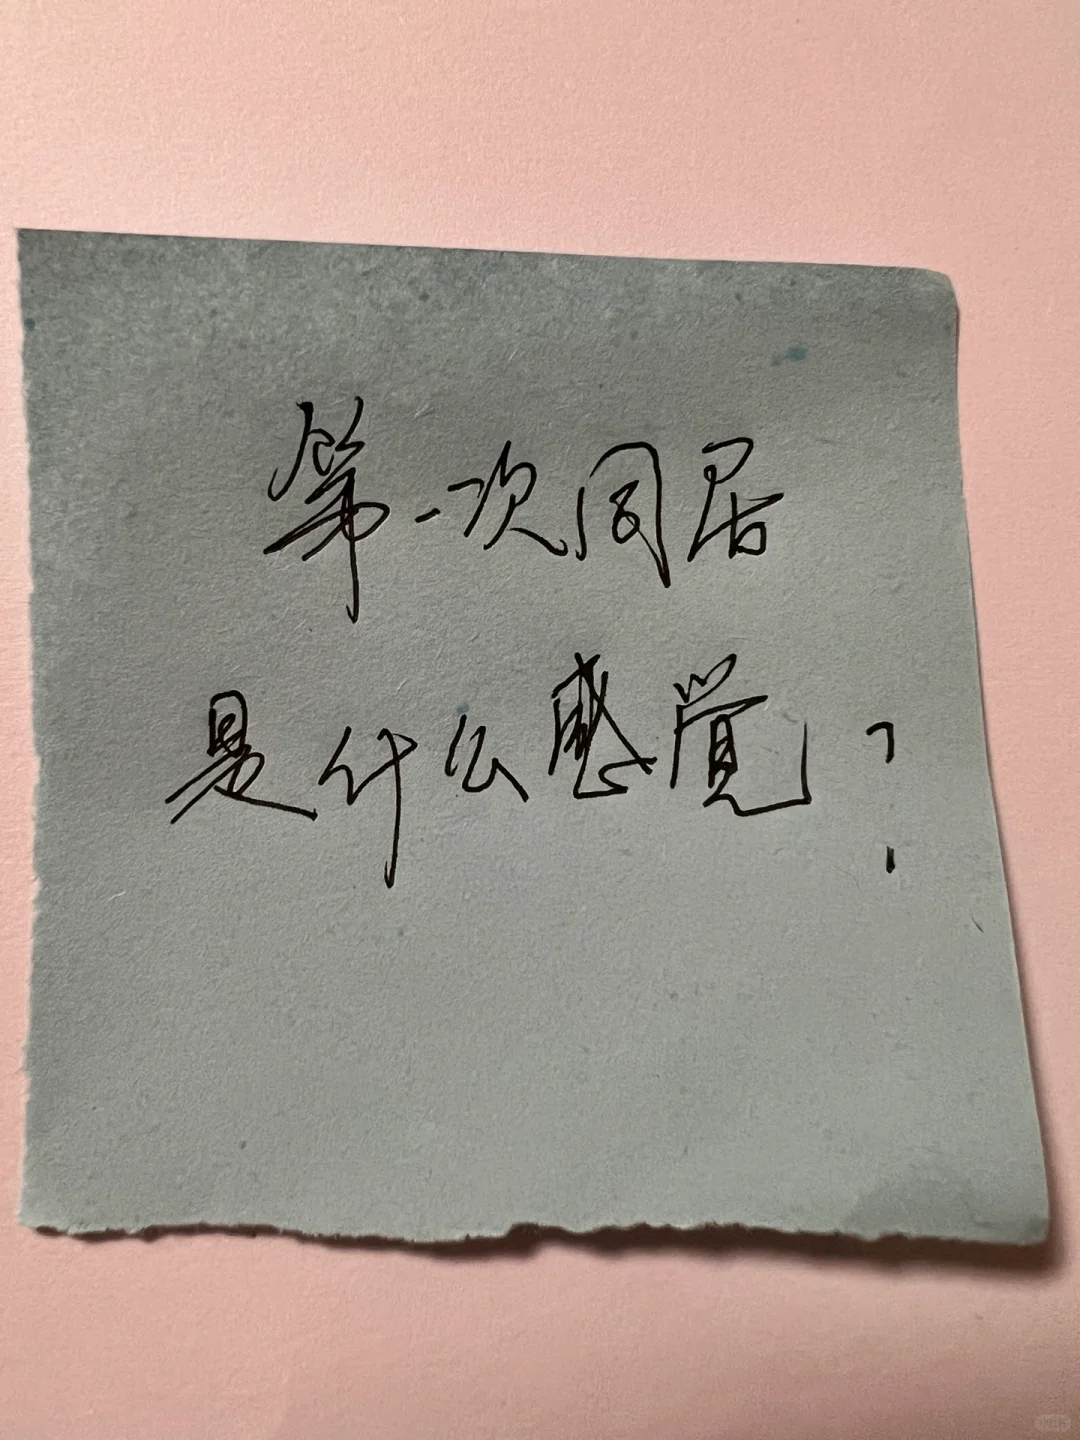 第一次同居
是什么感觉？